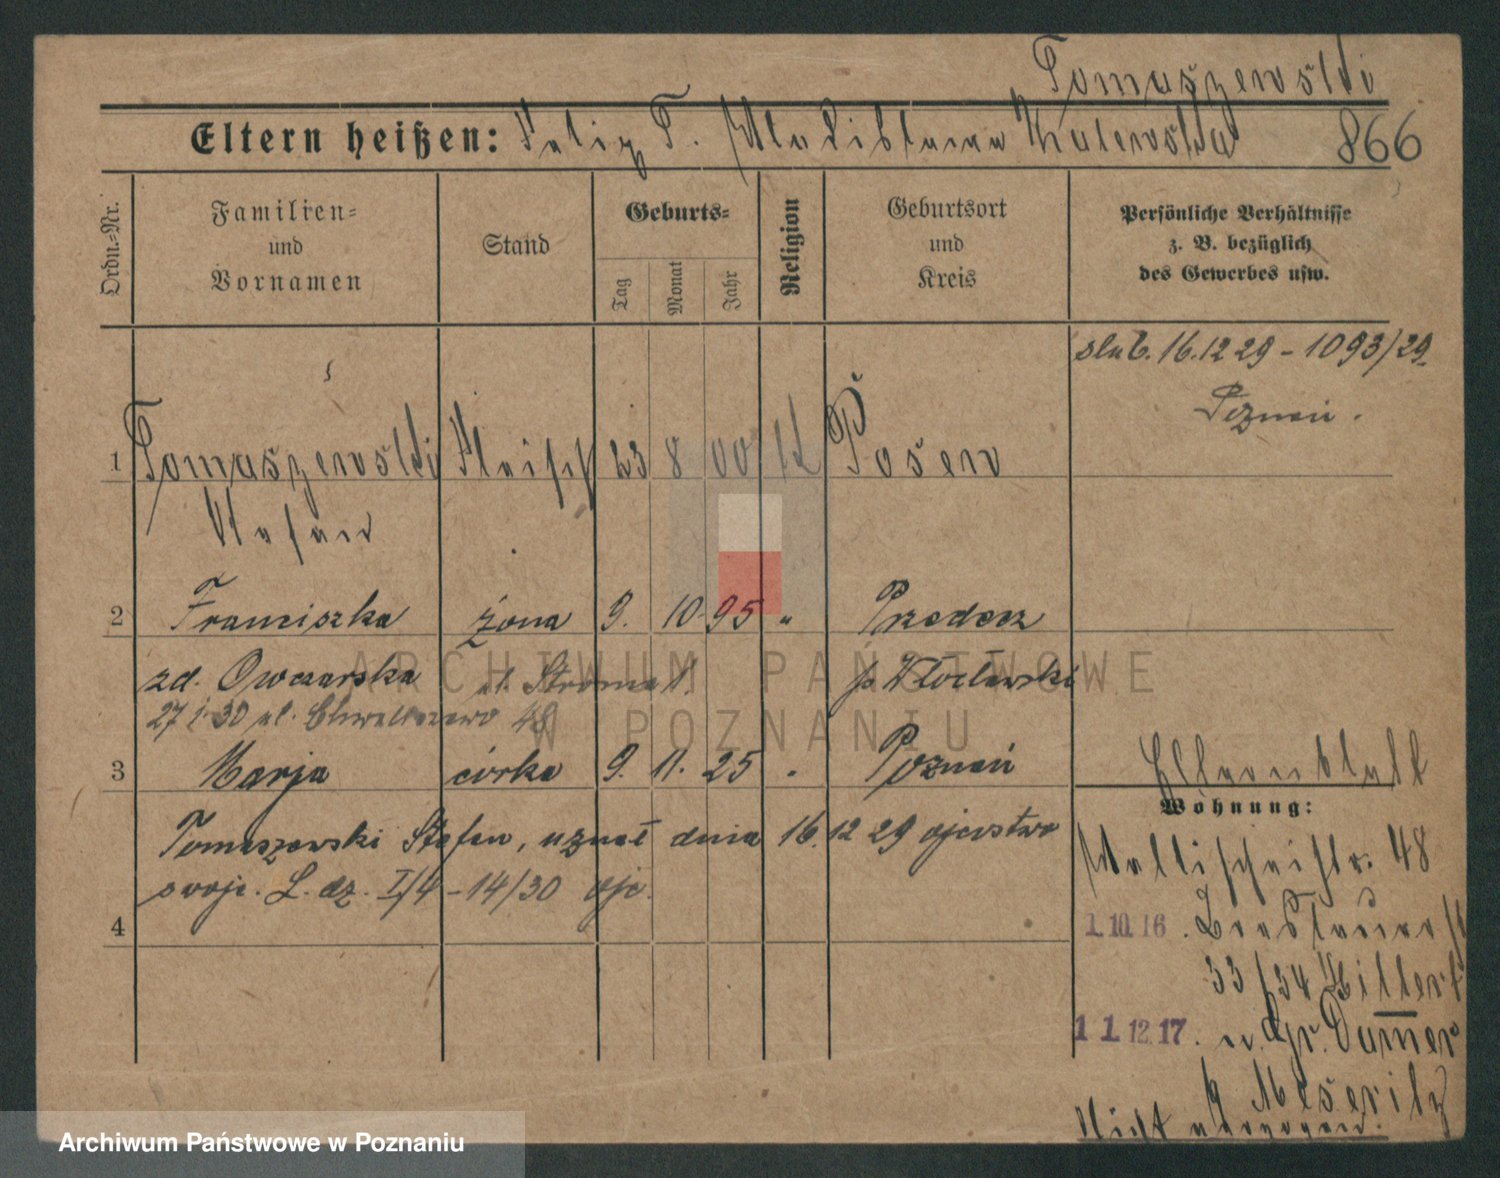 Tomaszewski
Eltern heißen: Felix T. Wladislawa Kulewska 866
Ordn.-Nr.
Familien-
und
Vornamen
Stand
Geburts-
Tag
Monat
Jahr
Religion
Geburtsort
und
Kreis
Persönliche Verhältnisse
z. B. bezüglich
des Gewerbes usw.
slub. 16.12 29 - 1093/29
Poznań.
1 Tomaszewski 23 8 00 k Posen
Stefan
2 Franciszka żona 9. 10. 95 " Przedecz
zd. Owczarska ul. Stroma p. Włocławski
27 1. 30 ul. Chwaliszewo 48
3 Marja córka 9. 11. 25 " Poznań
Elternblatt
Wohnung:
Tomaszewski Stefan, uznał dnia 16. 12 29 ojcostwo
swoje. L. dz. I/4 - 14/30 ojc.
Wallischeistr. 48
4
1.10.16.
33/34
11.12.17. n. Gr. Dammer
Meseritz
Nicht
ARCHIWUM PAŃSTWOWE
W POZNANIU
Archiwum Państwowe w Poznaniu